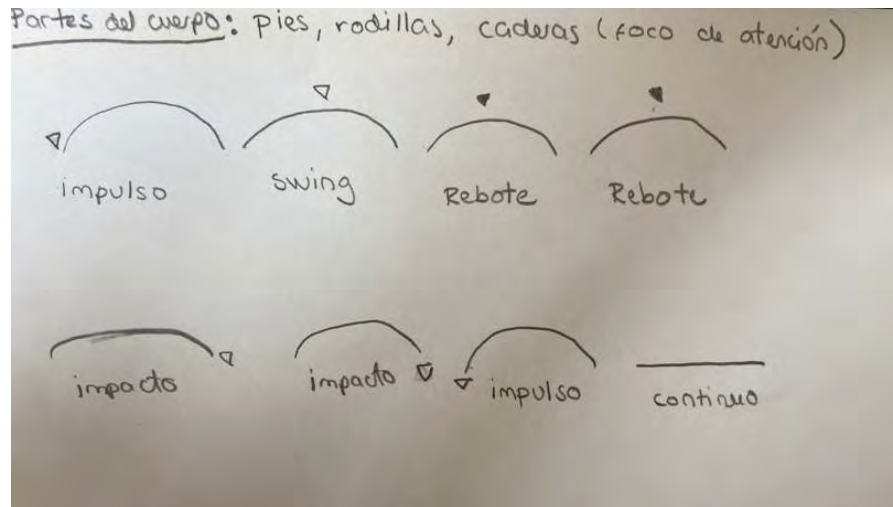 Partes del cuerpo: pies, rodillas, caderas (foco de atención)
impulso swing Rebote Rebote
impacto impacto impulso continuo